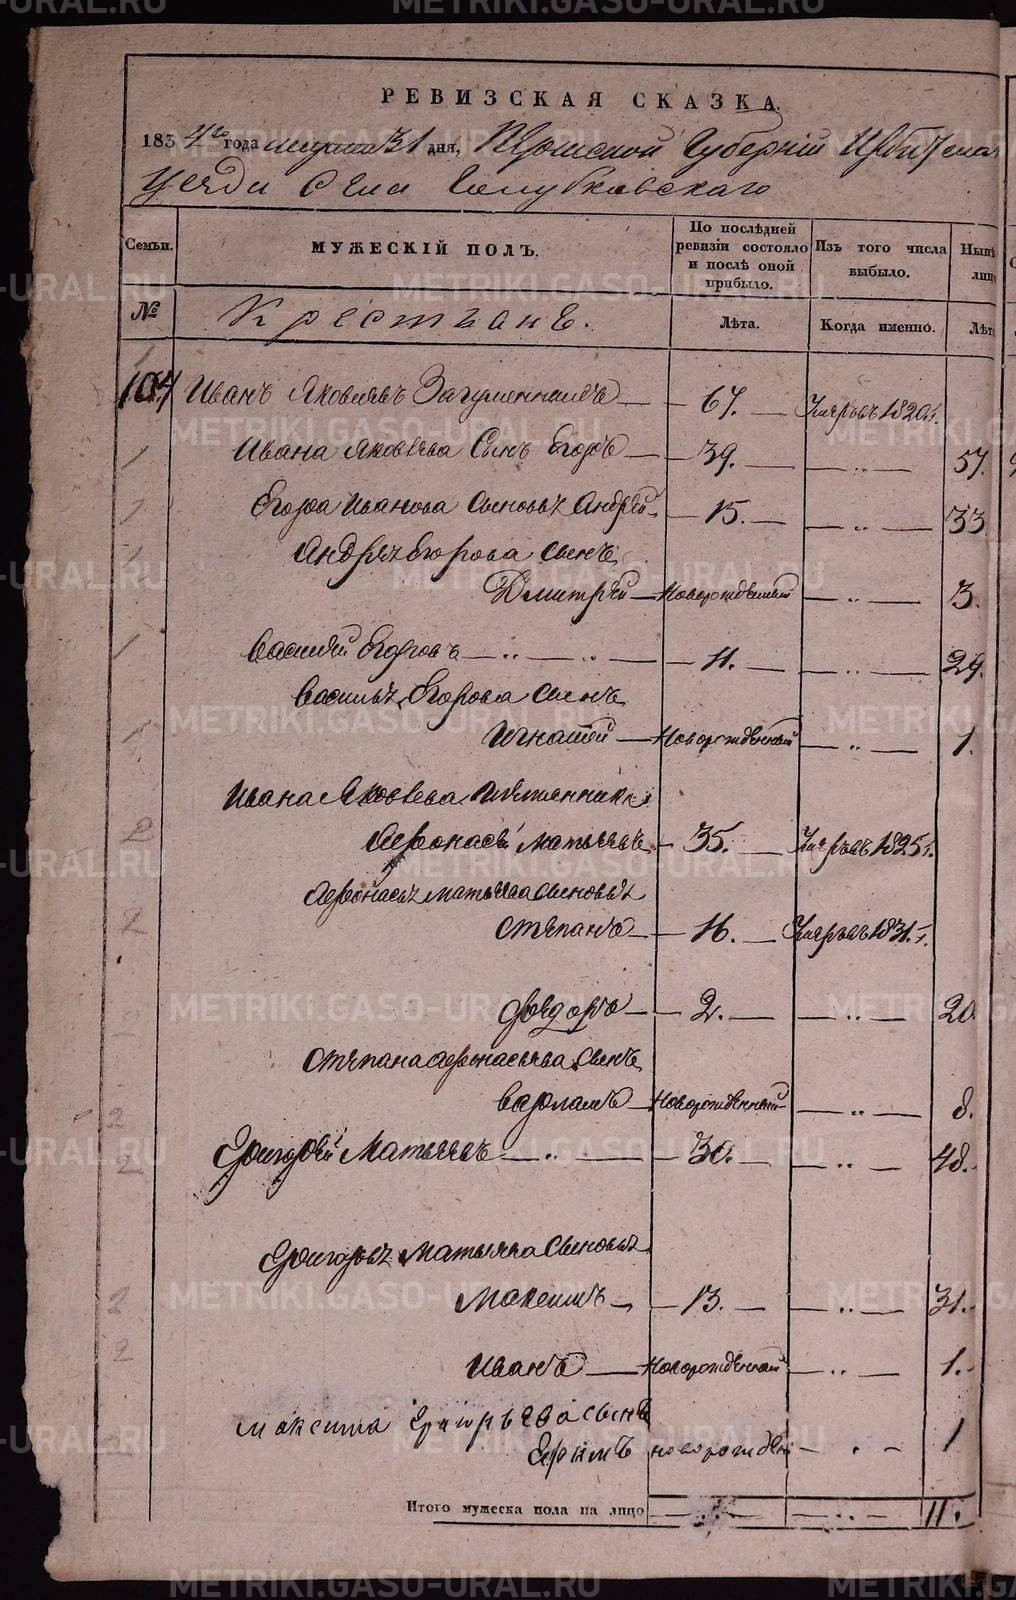 РЕВИЗСКАЯ СКАЗКА.
1834го года марта 31 дня, Пермской Губернiи Ирбитскаго
уезда Села Голубковскаго
Семьи. МУЖЕСКIЙ ПОЛЪ. По послѣдней ревизiи состояло и послѣ оной прибыло. Изъ того числа выбыло. Нынѣ лиц
№ Крестьянъ. Лѣта. Когда именно. Лѣт
104 Иванъ Яковлевъ Загуменныхъ 67. Умръ въ 1820.г.
Ивана Яковлева Сынъ Егоръ 39. — „ — 57.
Егора Иванова Сыновья Андрей 15. — „ — 33
Андрея Егорова сынъ
Дмитрей Новорожденный — „ — 3.
Василий Егоровъ — „ — „ — 11. — „ — 29.
Василья Егорова сынъ
Игнатей Новорожденный — „ — 1.
Ивана Яковлева племянники
Афонасей Матвеевъ 35. Умръ въ 1825.г.
Афонасья Матвеева сыновья
Степанъ 16. Умръ въ 1831.г.
Федоръ 2. — „ — 20
Степана Афонасьева сынъ
Варламъ Новорожденный — „ — 8.
Григорей Матвеевъ — „ — 30. — „ — 48.
Григорья Матвеева сыновья
Максимъ 13. — „ — 31.
Иванъ Новорожденный — „ — 1.
Максима Григорьева сынъ
Ефимъ новорожден — „ — 1
Итого мужеска пола на лицо — „ — 11.
METRIKI.GASO-URAL.RU